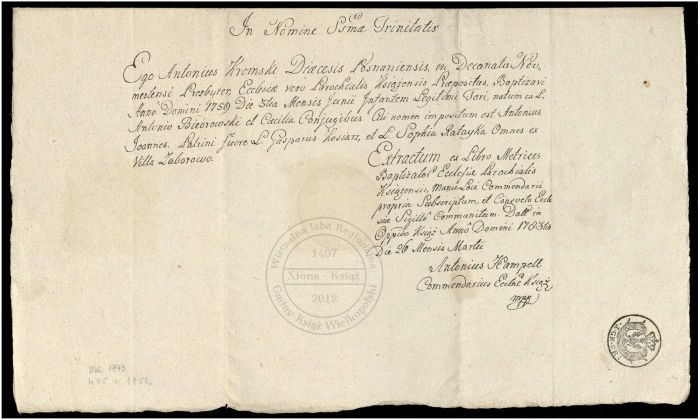 In Nomine Ssmæ Trinitatis
Ego Antonius Kremski Diæcesis Posnaniensis, in Decanatu Neo,
mestensi Presbyter, Ecclesiæ vero Parochialis Książensis Præpositus, Baptizavi
Anno Domini 1750 Die 5ta Mensis Junii Infantem Legitimi Tori, natum ex L.
Antonio Bieörowski et Cæcilia Conjugibus Cui nomen impositum est Antonius
Joannes. Patrini fuere L. Gasparus Kosiarz, et L. Sophia Ratayka Omnes ex
Villa Zaborowo.
Extractum ex Libro Metrices
Baptizator Ecclesiæ Parochialis
Książensis, Manu Loci Commendarii
propria Subscriptum, et Consveto Eccle
siæ Sigillo Communitum. Datt in
Oppido Książ Anno Domini
Die 26 Mensis Martii
Antonius Hampell
Commendarius Książ
mpp
Wirtualna Izba Regionalna
1407
Xions - Książ
2012
Gminy Książ Wielkopolski
1793